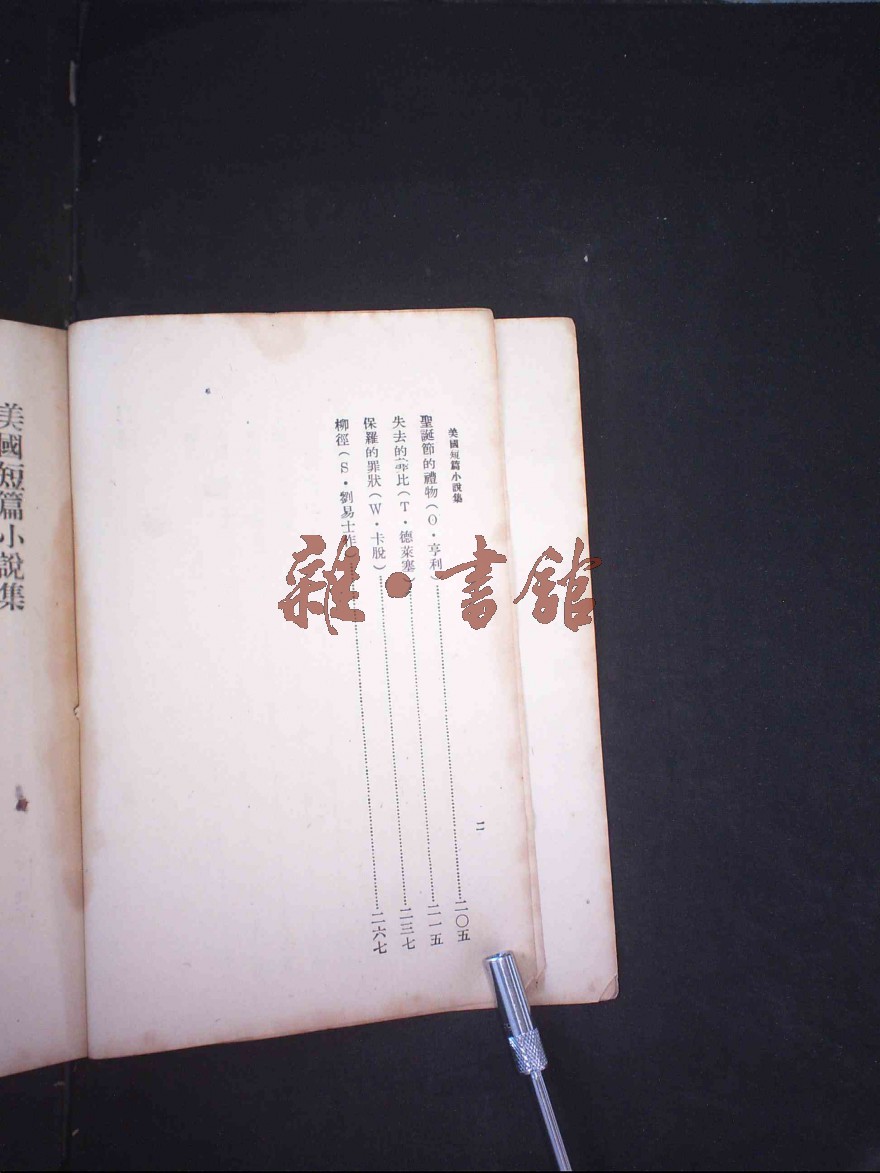 美國短篇小說集
二
聖誕節的禮物(O·亨利)……二〇五
失去的菲比(T·德萊塞)……二一五
保羅的罪狀(W·卡脫)……二三七
柳徑(S·劉易士作)……二六七
美國短篇小說集
雜·書館